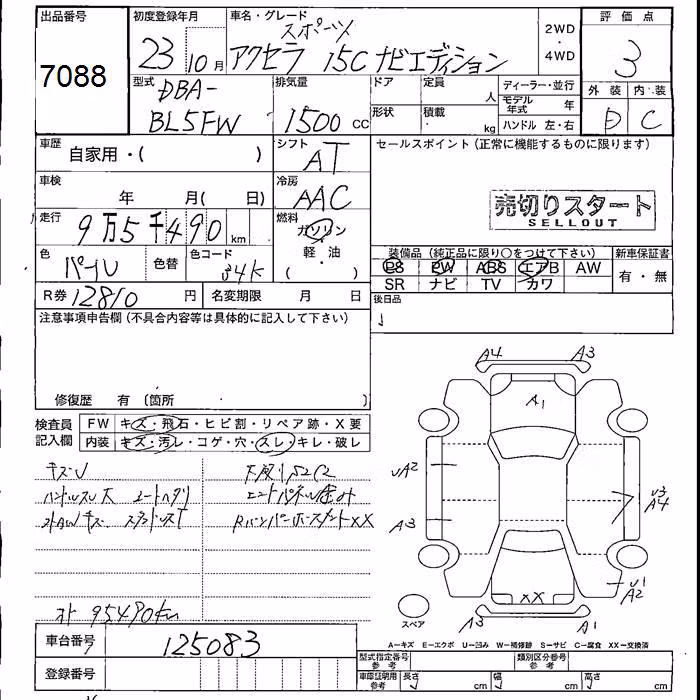 出品番号
7088
初度登録年月
23 10月
車名・グレード
スポーツ
アクセラ 15C ナビエディション
2WD
・
4WD
評価点
3
外装 内装
D C
型式
DBA-
BL5FW
排気量
1500 cc
ドア
定員
人
形状
積載
kg
ディーラー・並行
モデル年式 年
ハンドル 左・右
車歴
自家用・( )
シフト
AT
セールスポイント (正常に機能するものに限ります)
売切りスタート
SELLOUT
車検
年 月( 日)
冷房
AAC
走行
9万5千490 km
燃料
ガソリン
・
軽・油
( )
色
パール
色替
色コード
34K
装備品 (純正品に限り○をつけて下さい)
PS PW ABS エアB AW
SR ナビ TV カワ
新車保証書
有・無
R券 12810 円
名変期限 月 日
後日品
注意事項申告欄 (不具合内容等は具体的に記入して下さい)
修復歴 有 〔箇所 〕
検査員記入欄
FW キズ・飛石・ヒビ割・リペア跡・X要
内装 キズ・汚レ・コゲ・穴・スレ・キレ・破レ
キズU
ハンドルスレ大
XX
メト 95490km
A4 A3
A1
UA2
A3
U3
A4
XX
U1
A2
A3 A1
スペア
A=キズ E=エクボ U=凹み W=補修跡 S=サビ C=腐食 XX=交換済
車台番号
125083
登録番号
型式指定番号
参考
類別区分番号
参考
車庫証明用
参考
長さ cm
幅 cm
高さ cm